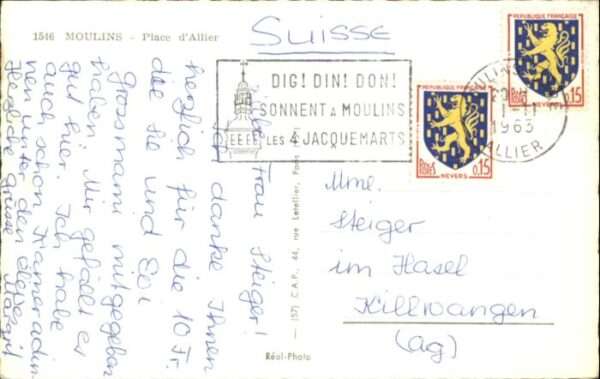 1546 MOULINS - Place d'Allier
SUISSE
DIG! DIN! DON!
SONNENT à MOULINS
LES 4 JACQUEMARTS
REPUBLIQUE FRANÇAISE
POSTES
0,15
NEVERS
REPUBLIQUE FRANÇAISE
POSTES
0,15
NEVERS
MOULINS
1963
ALLIER
Frau Steiger!
Ich danke Ihnen
herzlich für die 10 Fr.
die Sie und
Grossmami mitgegeben
haben. Mir gefällt es
gut hier. Ich habe
auch schon Kameradin-
nen unter den
Herzliche Grüsse
Margrit
(57) C.A.P., 44, rue Letellier, Paris
Réal-Photo
Mme.
Steiger
im Hasel
Killwangen
(ag)